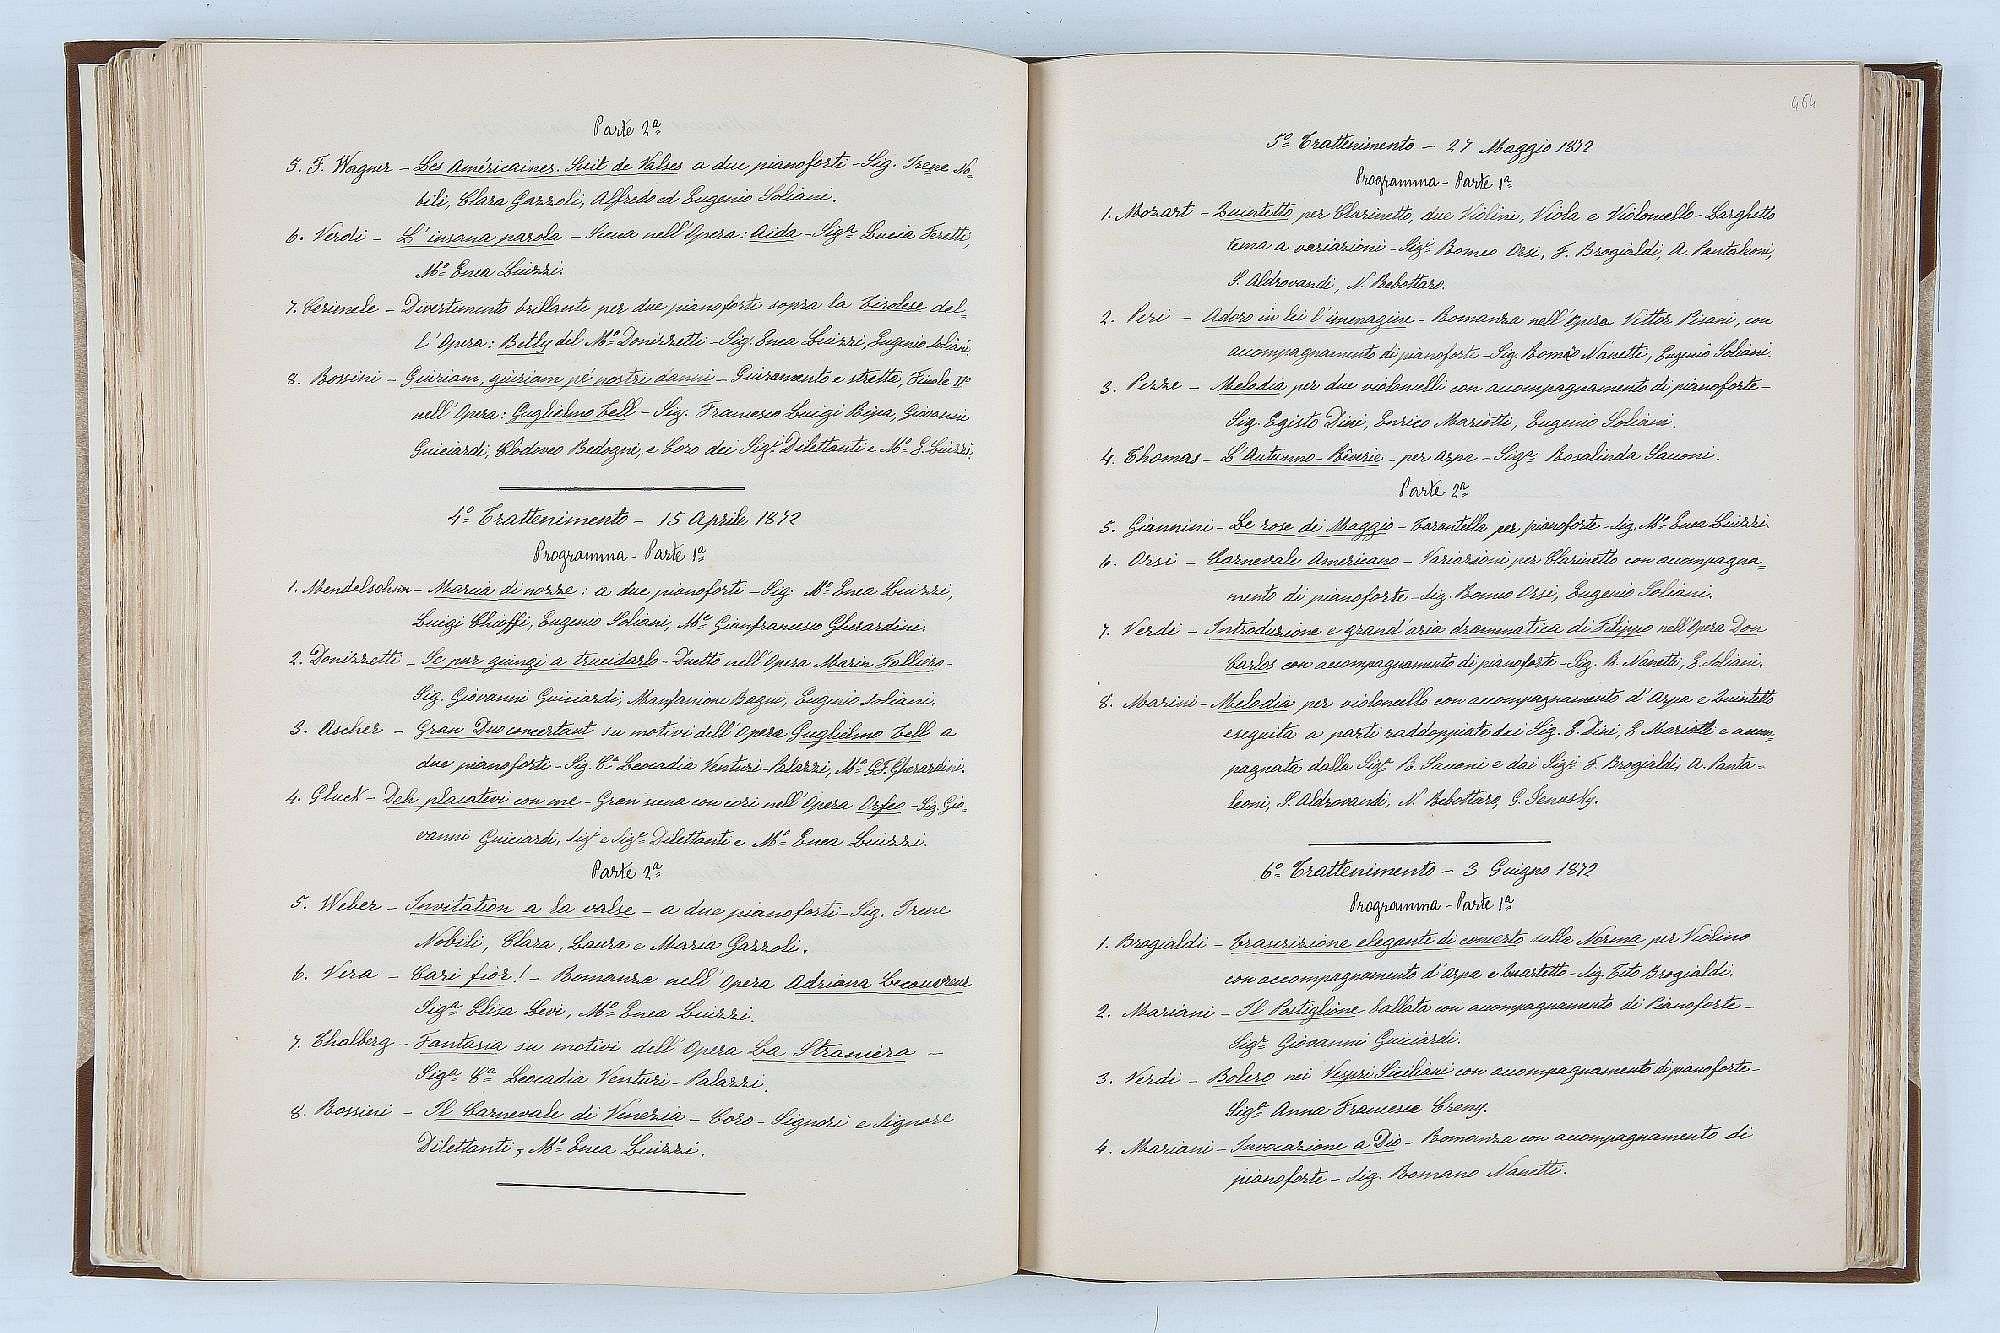 Parte 2ª
5. F. Wagner - Les Américaines. Suit de Valses a due pianoforti - Sig. Irene No-
bili, Clara Gazzoli, Alfredo ed Eugenio Soliani.
6. Verdi - L'insana parola - Scena nell'Opera: Aida - Sigª Lucia Feretti,
Mº Enea Luizzi.
7. Cerimele - Divertimento brillante per due pianoforti sopra la Tirolese del-
l'Opera: Betly del Mº Donizzetti - Sig. Enea Luizzi, Eugenio Soliani.
8. Rossini - Guiriam, guiriam pe' nostri danni - Guiramento e stretta, Finale IIº
nell'Opera: Guglielmo Tell - Sig. Francesco Luigi Ripa, Giovanni
Guiciardi, Clodoveo Bedogni, e Coro dei Sigⁱ Dilettanti e Mº E. Luizzi.
4º Trattenimento - 15 Aprile 1872
Programma - Parte 1ª
1. Mendelsohnn - Marcia di nozze: a due pianoforti - Sig. Mº Enea Luizzi,
Luigi Chiaffi, Eugenio Soliani, Mº Gianfrancesco Gherardini.
2. Donizzetti - Se pur giungi a trucidarlo - Duetto nell'Opera Marin Falliero -
Sig. Giovanni Guiciardi, Manfanione Bagni, Eugenio Soliani.
3. Ascher - Gran Duo concertant su motivi dell'Opera Guglielmo Tell a
due pianoforti - Sig. Cª Leocadia Venturi-Palazzi, Mº G.F. Gherardini.
4. Gluck - Deh placatevi con me - Gran scena con cori nell'Opera Orfeo - Sig. Gio-
vanni Guiciardi, Sigⁱ e Sigᵉ Dilettanti e Mº Enea Luizzi.
Parte 2ª
5. Weber - Invitation a la valse - a due pianoforti - Sig. Irene
Nobili, Clara, Laura e Maria Gazzoli.
6. Vera - Cari fior! - Romanza nell'Opera Adriana Lecouvreur
Sigª Elisa Levi, Mº Enea Luizzi.
7. Thalberg - Fantasia su motivi dell'Opera La Straniera -
Sigª Cª Leocadia Venturi-Palazzi.
8. Rossini - Il Carnevale di Venezia - Coro - Signori e Signore
Dilettanti, Mº Enea Luizzi.
464
5º Trattenimento - 27 Maggio 1872
Programma - Parte 1ª
1. Mozart - Quintetto per Clarinetto, due Violini, Viola e Violoncello - Larghetto
tema a variazioni - Sigⁱ Romeo Orsi, F. Brogialdi, A. Pantaleoni,
S. Aldrovandi, N. Rebottaro.
2. Peri - Adoro in lei l'immagine - Romanza nell'Opera Vittor Pisani, con
accompagnamento di pianoforte - Sig. Romano Nanetti, Eugenio Soliani.
3. Pezze - Melodia per due violoncelli con accompagnamento di pianoforte -
Sig. Egisto Dini, Enrico Mariotti, Eugenio Soliani.
4. Thomas - L'Autunno - Rêverie - per Arpa - Sigª Rosalinda Sacconi.
Parte 2ª
5. Giannini - Le rose di Maggio - Tarantella per pianoforte - Sig. Mº Enea Luizzi.
6. Orsi - Carnevale Americano - Variazioni per Clarinetto con accompagna-
mento di pianoforte - Sig. Romeo Orsi, Eugenio Soliani.
7. Verdi - Introduzione e grand'aria drammatica di Filippo nell'Opera Don
Carlos con accompagnamento di pianoforte - Sig. R. Nanetti, E. Soliani.
8. Marini - Melodia per violoncello con accompagnamento d'Arpa e Quintetto
eseguita a parti raddoppiate dei Sig. E. Dini, E. Mariotti e accom-
pagnata dalla Sigª R. Sacconi e dai Sigⁱ F. Brogialdi, A. Panta-
leoni, S. Aldrovandi, N. Rebottaro, G. Jenusky.
6º Trattenimento - 3 Guigno 1872
Programma - Parte 1ª
1. Brogialdi - Trascrizione elegante di concerto sulla Norma per Violino
con accompagnamento d'Arpa e Quartetto - Sig. Tito Brogialdi.
2. Mariani - Il Postiglione ballata con accompagnamento di Pianoforte -
Sigʳ Giovanni Guiciardi.
3. Verdi - Bolero nei Vespri Siciliani con accompagnamento di pianoforte -
Sigª Anna Francesca Creny.
4. Mariani - Invocazione a Dio - Romanza con accompagnamento di
pianoforte - Sig. Romano Nanetti.